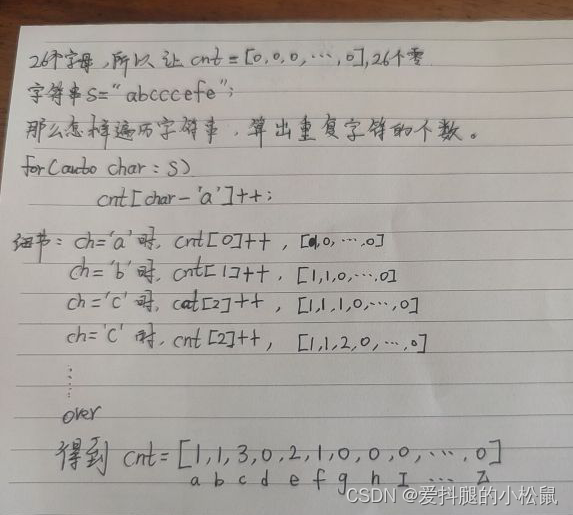 26个字母,所以让 cnt=[0,0,0,…,0],26个零
字符串S="abcccefe";
那么怎样遍历字符串,算出重复字符的个数。
for(auto char : S)
cnt[char-'a']++;
细节:ch='a'时, cnt[0]++, [1,0,…,0]
ch='b'时, cnt[1]++, [1,1,0,…,0]
ch='c'时, cnt[2]++, [1,1,1,0,…,0]
ch='c'时, cnt[2]++, [1,1,2,0,…,0]
⋮
over
得到 cnt=[1,1,3,0,2,1,0,0,0,…,0]
a b c d e f g h I … Z
CSDN @爱抖腿的小松鼠